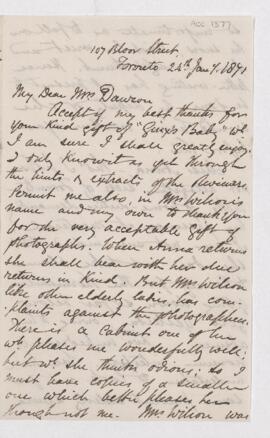 ACC 1377
107 Bloor Street
Toronto 24th Jany. 1891
My Dear Mrs Dawson
Accept of my best thanks for
your kind gift of "Guy's Baby" wh.
I am sure I shall greatly enjoy.
I only know it as yet through
the hints & extracts of the Reviewers.
Permit me also, in Mrs Wilson's
name and my own to thank you
for the very acceptable gift of
photographs. When Anna returns
she shall bear with her due
returns in kind. But Mrs Wilson
like other elderly ladies, has com-
plaints against the photographers.
There is a Cabinet one of her
wh pleases me wonderfully well;
but wh. she thinks odious; so I
must have copies of a smaller
one which better pleases her
though not me. Mrs Wilson was